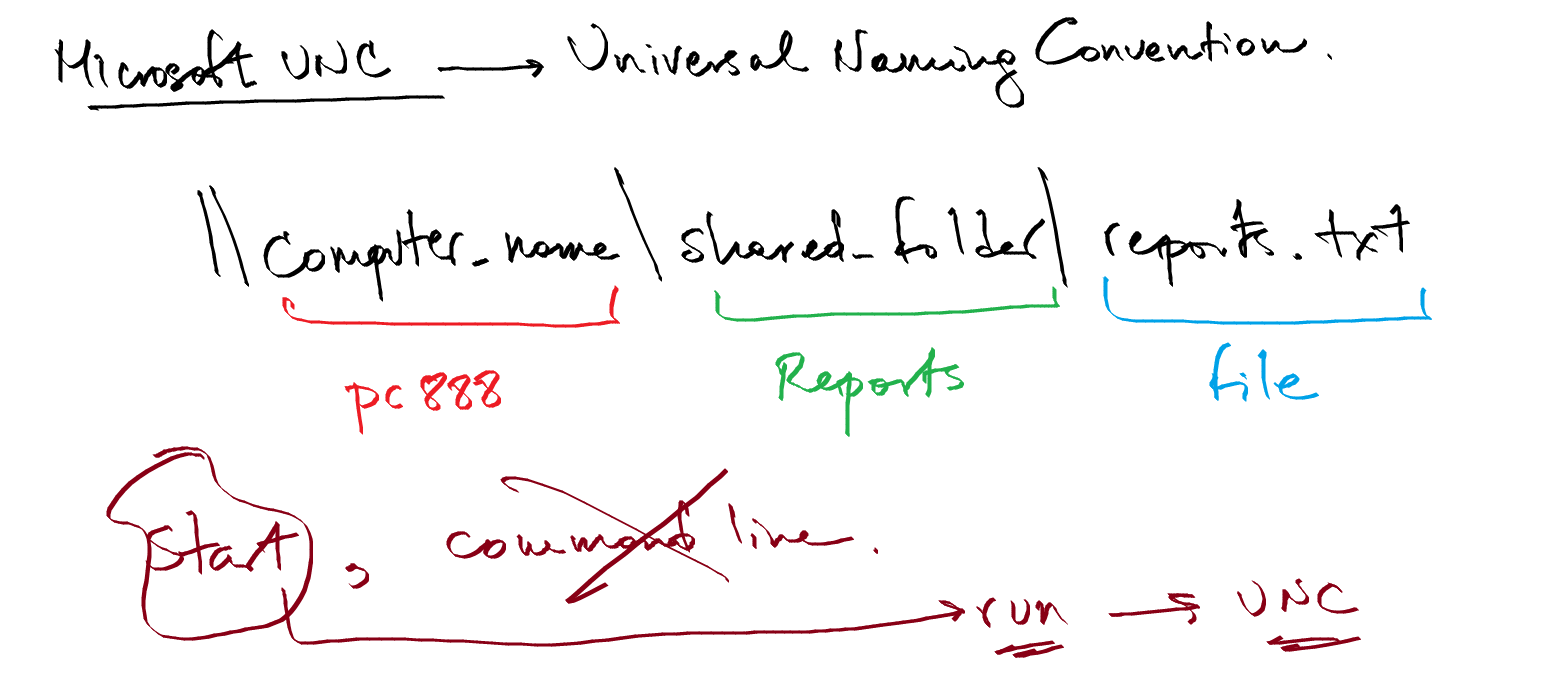 Microsoft UNC → Universal Naming Convention.
\\computer_name\shared_folder\reports.txt
pc888 Reports file
Start, command line.
run → UNC